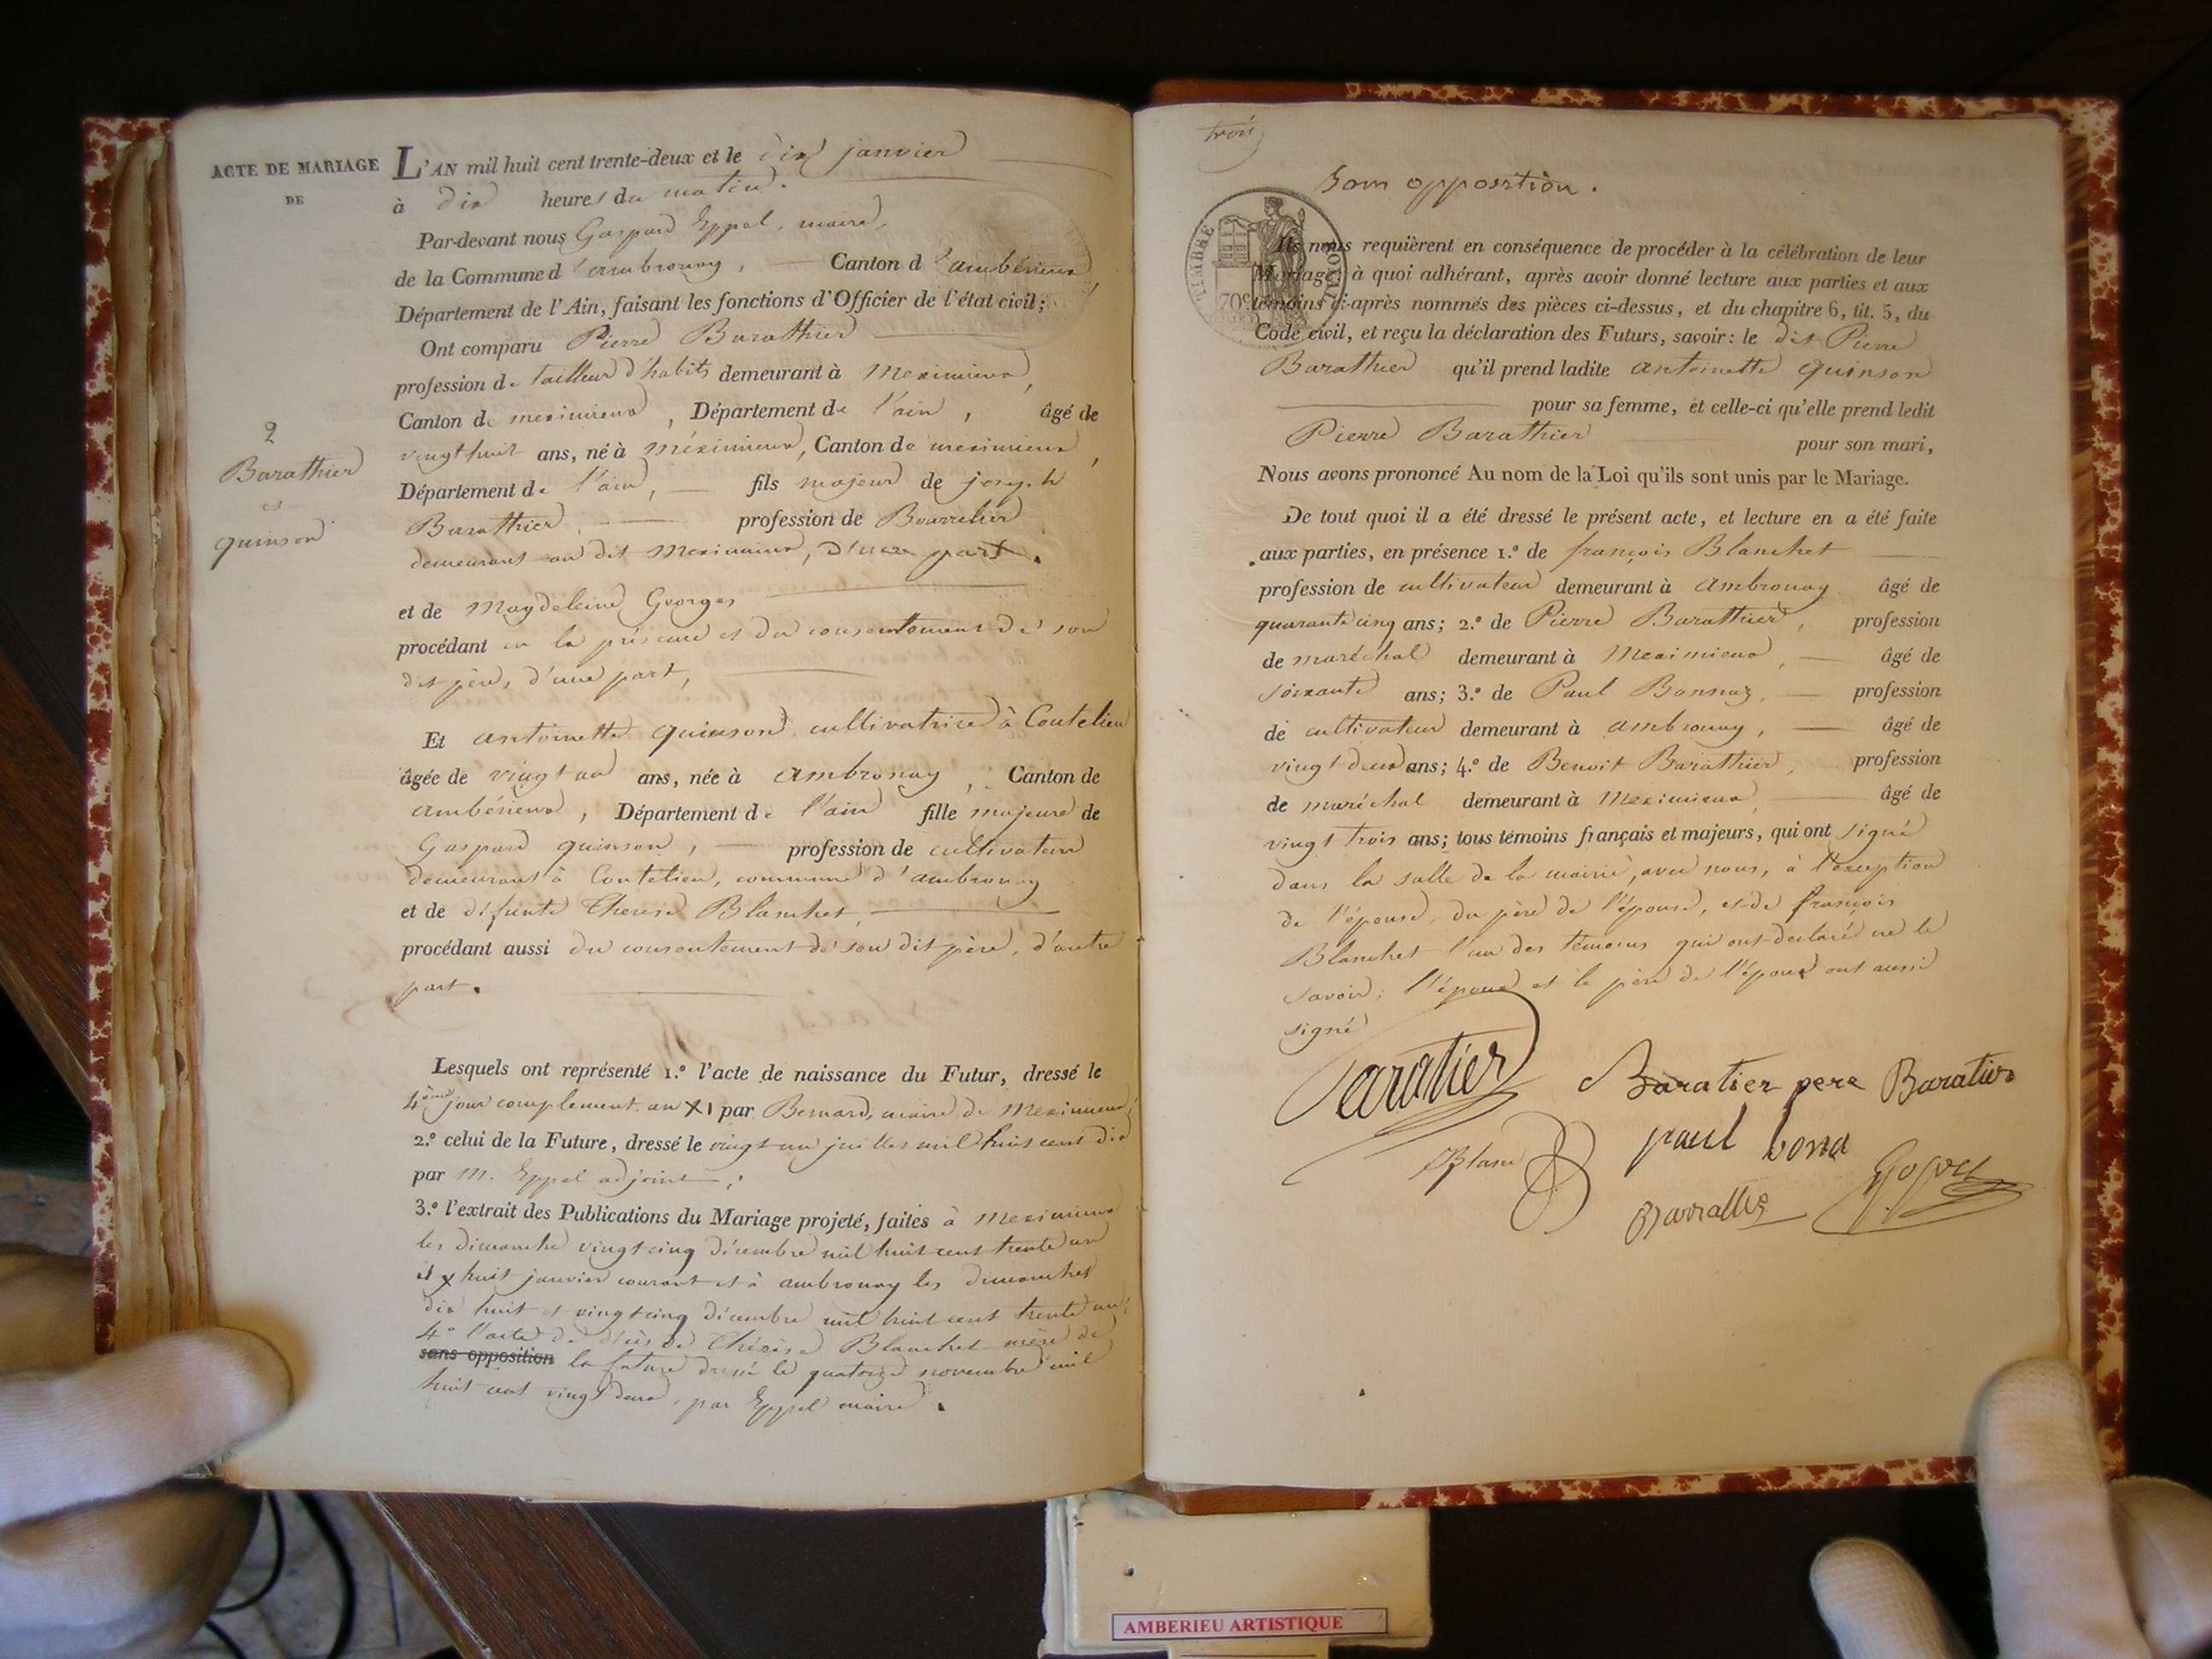 ACTE DE MARIAGE
DE
2
Barathier
et
quinson
L'AN mil huit cent trente-deux et le dix janvier
à dix heures du matin.
Par-devant nous Gaspard Eppel, maire,
de la Commune d'ambronay, Canton d'ambérieux
Département de l'Ain, faisant les fonctions d'Officier de l'état civil;
Ont comparu Pierre Barathier
profession de tailleur d'habits demeurant à Meximieux,
Canton de meximieux, Département de l'ain, âgé de
vingt huit ans, né à méximieux, Canton de meximieux,
Département de l'ain, fils majeur de joseph
Barathier, profession de Bourrelier
demeurant au dit Meximieux, d'une part.
et de Magdeleine Georges
procédant en la présence et du consentement de son
dit père, d'une part,
Et antoinette quinson cultivatrice à Coutelieu
âgée de vingt un ans, née à ambronay, Canton de
ambérieux, Département de l'ain fille majeure de
Gaspard quinson, profession de cultivateur
demeurant à Coutelieu, commune d'ambronay
et de défunte Therese Blanchet,
procédant aussi du consentement de son dit père, d'autre
part.
Lesquels ont représenté 1.º l'acte de naissance du Futur, dressé le
4ème jour complement. an XI par Bernard, maire de Meximieux;
2.º celui de la Future, dressé le vingt un juillet mil huit cent dix
par M. Eppel adjoint;
3.º l'extrait des Publications du Mariage projeté, faites à Meximieux
les dimanche vingt cinq décembre mil huit cent trente un
et huit janvier courant et à ambronay les dimanches
dix huit et vingt cinq décembre mil huit cent trente un;
4º l'acte de décès de Thérèse Blanchet mère de
sans opposition la future dressé le quatorze novembre mil
huit cent vingt deux, par Eppel maire.
trois
Sans opposition.
TIMBRE ROYAL
70c
Ils nous requièrent en conséquence de procéder à la célébration de leur
Mariage; à quoi adhérant, après avoir donné lecture aux parties et aux
témoins ci-après nommés des pièces ci-dessus, et du chapitre 6, tit. 5, du
Code civil, et reçu la déclaration des Futurs, savoir: le dit Pierre
Barathier qu'il prend ladite antoinette quinson
pour sa femme, et celle-ci qu'elle prend ledit
Pierre Barathier pour son mari,
Nous avons prononcé Au nom de la Loi qu'ils sont unis par le Mariage.
De tout quoi il a été dressé le présent acte, et lecture en a été faite
aux parties, en présence 1.º de françois Blanchet
profession de cultivateur demeurant à ambronay âgé de
quarante cinq ans; 2.º de Pierre Barathier, profession
de maréchal demeurant à Meximieux, âgé de
soixante ans; 3.º de Paul Bonnaz, profession
de cultivateur demeurant à ambronay, âgé de
vingt deux ans; 4.º de Benoit Barathier, profession
de maréchal demeurant à Meximieux, âgé de
vingt trois ans; tous témoins français et majeurs, qui ont signé
dans la salle de la mairie, avec nous, à l'exception
de l'épouse, du père de l'épouse, et de françois
Blanchet l'un des témoins qui ont déclaré ne le
savoir; l'époux et le père de l'époux ont aussi
signé
Baratier Baratier pere Baratier
Blanc paul bona
Barratier
AMBERIEU ARTISTIQUE